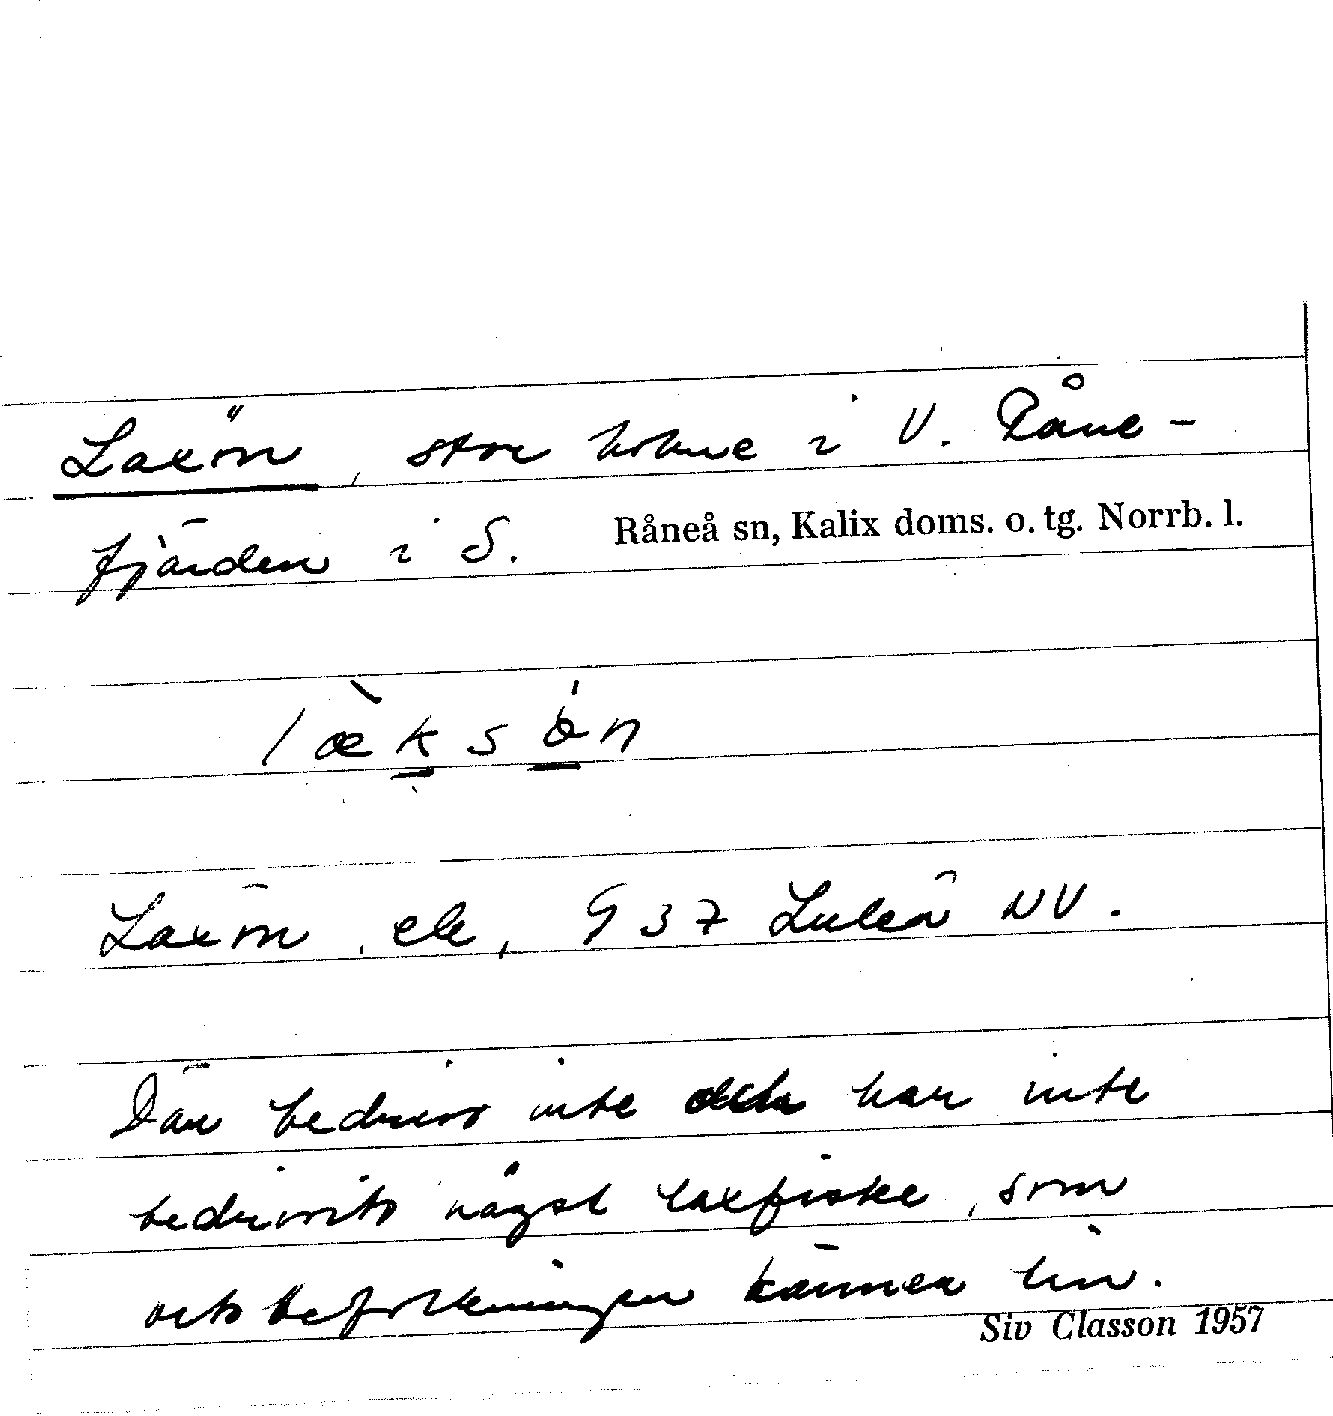 Laxön, stor holme i V. Råne-
fjärden i S. Råneå sn, Kalix doms. o. tg. Norrb. l.
l æ̀ k s ö́ n
Laxön, ek, 937 Luleå NV.
Där bedrivs inte och har inte
bedrivits något laxfiske, som
ortsbefolkningen känner till.
Siv Classon 1957